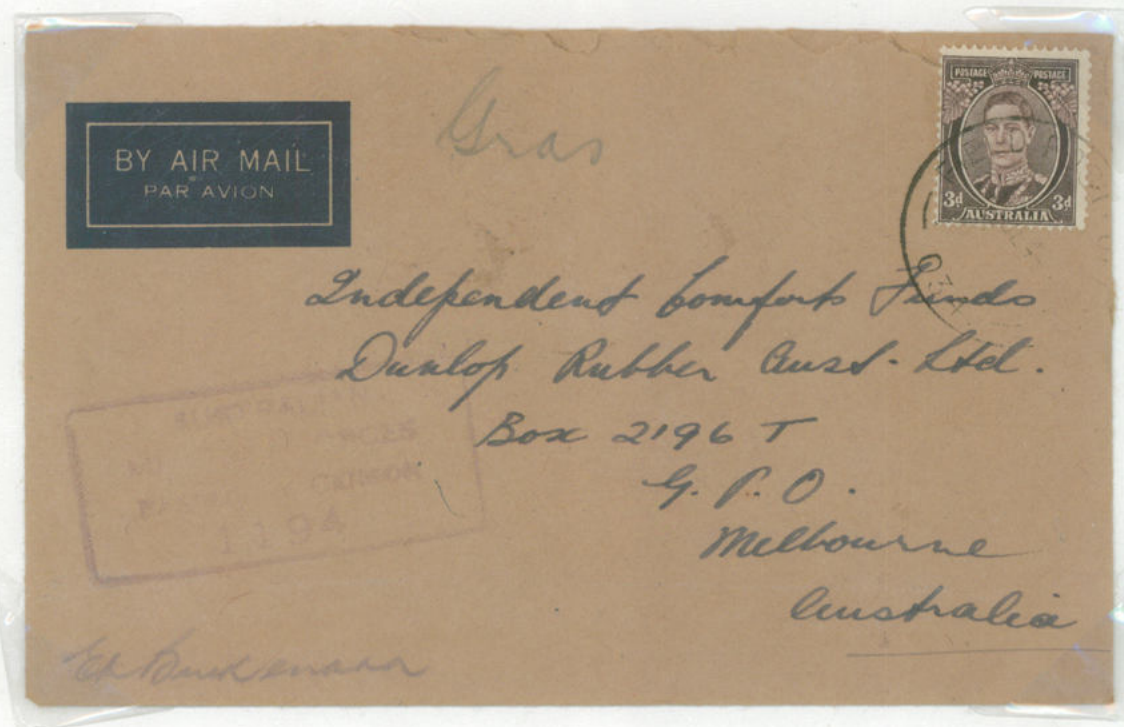 BY AIR MAIL
PAR AVION
Gras
POSTAGE POSTAGE
3d 3d
AUSTRALIA
Independent Comforts Funds
Dunlop Rubber Aust. Ltd.
Box 2196 T
G. P. O.
Melbourne
Australia
CENSOR
1194